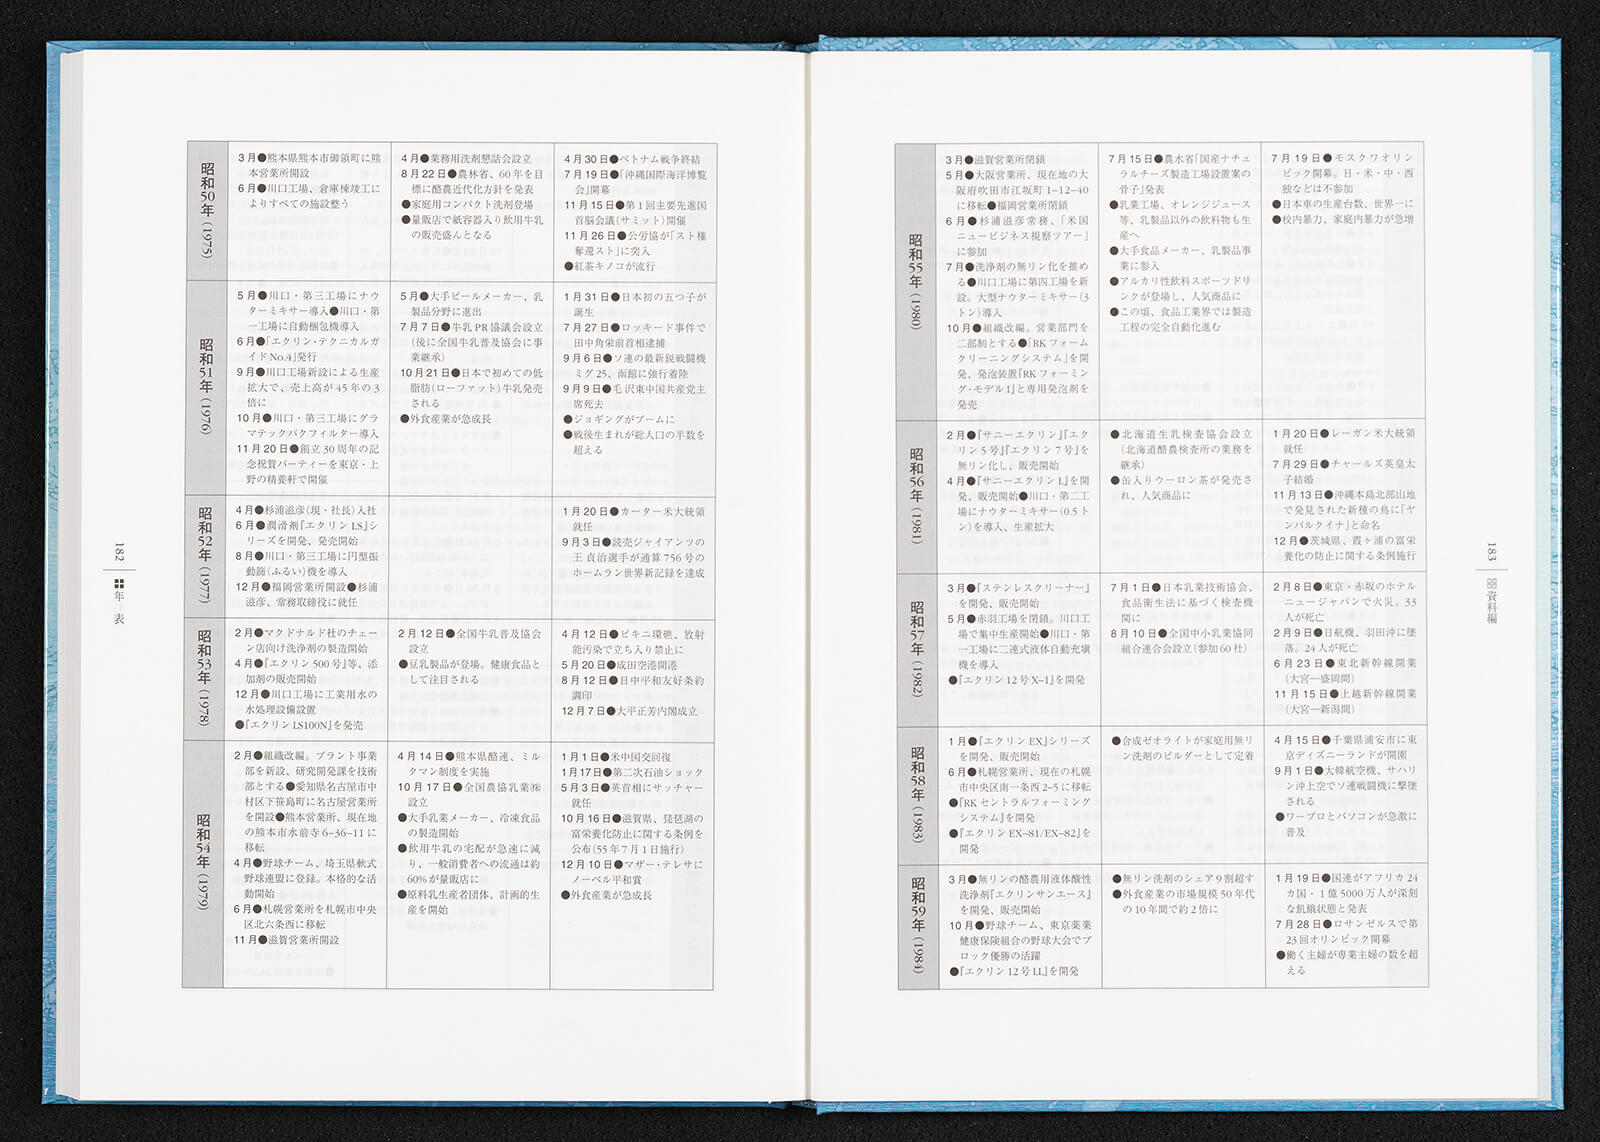 昭和50年(1975)
3月●熊本県熊本市御領町に熊
本営業所開設
6月●川口工場、倉庫棟竣工に
よりすべての施設整う
4月●業務用洗剤懇話会設立
8月22日●農林省、60年を目
標に酪農近代化方針を発表
●家庭用コンパクト洗剤登場
●量販店で紙容器入り飲用牛乳
の販売盛んとなる
4月30日●ベトナム戦争終結
7月19日●「沖縄国際海洋博覧
会」開幕
11月15日●第1回主要先進国
首脳会議(サミット)開催
11月26日●公労協が「スト権
奪還スト」に突入
●紅茶キノコが流行
昭和51年(1976)
5月●川口・第三工場にナウ
ターミキサー導入●川口・第
一工場に自動梱包機導入
6月●「エクリン・テクニカルガ
イドNo.4」発行
9月●川口工場新設による生産
拡大で、売上高が45年の3
倍に
10月●川口・第三工場にグラ
マテックバクフィルター導入
11月20日●創立30周年の記
念祝賀パーティーを東京・上
野の精養軒で開催
5月●大手ビールメーカー、乳
製品分野に進出
7月7日●牛乳PR協議会設立
(後に全国牛乳普及協会に事
業継承)
10月21日●日本で初めての低
脂肪(ローファット)牛乳発売
される
●外食産業が急成長
1月31日●日本初の五つ子が
誕生
7月27日●ロッキード事件で
田中角栄前首相逮捕
9月6日●ソ連の最新鋭戦闘機
ミグ25、函館に強行着陸
9月9日●毛沢東中国共産党主
席死去
●ジョギングがブームに
●戦後生まれが総人口の半数を
超える
昭和52年(1977)
4月●杉浦滋彦(現・社長)入社
6月●潤滑剤『エクリンLS』シ
リーズを開発、発売開始
8月●川口・第三工場に円型振
動篩(ふるい)機を導入
12月●福岡営業所開設●杉浦
滋彦、常務取締役に就任
1月20日●カーター米大統領
就任
9月3日●読売ジャイアンツの
王 貞治選手が通算756号の
ホームラン世界新記録を達成
昭和53年(1978)
2月●マクドナルド社のチェー
ン店向け洗浄剤の製造開始
4月●『エクリン500号』等、添
加剤の販売開始
12月●川口工場に工業用水の
水処理設備設置
●『エクリンLS100N』を発売
2月12日●全国牛乳普及協会
設立
●豆乳製品が登場。健康食品と
して注目される
4月12日●ビキニ環礁、放射
能汚染で立ち入り禁止に
5月20日●成田空港開港
8月12日●日中平和友好条約
調印
12月7日●大平正芳内閣成立
昭和54年(1979)
2月●組織改編。プラント事業
部を新設、研究開発課を技術
部とする●愛知県名古屋市中
村区下笹島町に名古屋営業所
を開設●熊本営業所、現在地
の熊本市水前寺6-36-11に
移転
4月●野球チーム、埼玉県軟式
野球連盟に登録。本格的な活
動開始
6月●札幌営業所を札幌市中央
区北六条西に移転
11月●滋賀営業所開設
4月14日●熊本県酪連、ミル
クマン制度を実施
10月17日●全国農協乳業㈱
設立
●大手乳業メーカー、冷凍食品
の製造開始
●飲用牛乳の宅配が急速に減
り、一般消費者への流通は約
60%が量販店に
●原料乳生産者団体、計画的生
産を開始
1月1日●米中国交回復
1月17日●第二次石油ショック
5月3日●英首相にサッチャー
就任
10月16日●滋賀県、琵琶湖の
富栄養化防止に関する条例を
公布(55年7月1日施行)
12月10日●マザー・テレサに
ノーベル平和賞
●外食産業が急成長
182
年 表
昭和55年(1980)
3月●滋賀営業所閉鎖
5月●大阪営業所、現在地の大
阪府吹田市江坂町1-12-40
に移転●福岡営業所閉鎖
6月●杉浦滋彦常務、「米国
ニュービジネス視察ツアー」
に参加
7月●洗浄剤の無リン化を推め
る●川口工場に第四工場を新
設。大型ナウターミキサー(3
トン)導入
10月●組織改編。営業部門を
二部制とする●「RKフォーム
クリーニングシステム」を開
発、発泡装置『RKフォーミン
グ・モデル1』と専用発泡剤を
発売
7月15日●農水省「国産ナチュ
ラルチーズ製造工場設置案の
骨子」発表
●乳業工場、オレンジジュース
等、乳製品以外の飲料物も生
産へ
●大手食品メーカー、乳製品事
業に参入
●アルカリ性飲料スポーツドリ
ンクが登場し、人気商品に
●この頃、食品工業界では製造
工程の完全自動化進む
7月19日●モスクワオリン
ピック開幕。日・米・中・西
独などは不参加
●日本車の生産台数、世界一に
●校内暴力、家庭内暴力が急増
昭和56年(1981)
2月●『サニーエクリン』『エク
リン5号』『エクリン7号』を
無リン化し、販売開始
4月●『サニーエクリンL』を開
発、販売開始●川口・第二工
場にナウターミキサー(0.5ト
ン)を導入、生産拡大
●北海道生乳検査協会設立
(北海道酪農検査所の業務を
継承)
●缶入りウーロン茶が発売さ
れ、人気商品に
1月20日●レーガン米大統領
就任
7月29日●チャールズ英皇太
子結婚
11月13日●沖縄本島北部山地
で発見された新種の鳥に「ヤ
ンバルクイナ」と命名
12月●茨城県、霞ヶ浦の富栄
養化の防止に関する条例施行
昭和57年(1982)
3月●『ステンレスクリーナー』
を開発、販売開始
5月●赤羽工場を閉鎖。川口工
場で集中生産開始●川口・第
一工場に二連式液体自動充塡
機を導入
●『エクリン12号X-1』を開発
7月1日●日本乳業技術協会、
食品衛生法に基づく検査機
関に
8月10日●全国中小乳業協同
組合連合会設立(参加60社)
2月8日●東京・赤坂のホテル
ニュージャパンで火災。33
人が死亡
2月9日●日航機、羽田沖に墜
落。24人が死亡
6月23日●東北新幹線開業
(大宮―盛岡間)
11月15日●上越新幹線開業
(大宮―新潟間)
昭和58年(1983)
1月●『エクリンEX』シリーズ
を開発、販売開始
6月●札幌営業所、現在の札幌
市中央区南一条西2-5に移転
●『RKセントラルフォーミング
システム』を開発
●『エクリンEX-81/EX-82』を
開発
●合成ゼオライトが家庭用無リ
ン洗剤のビルダーとして定着
4月15日●千葉県浦安市に東
京ディズニーランドが開園
9月1日●大韓航空機、サハリ
ン沖上空でソ連戦闘機に撃墜
される
●ワープロとパソコンが急激に
普及
昭和59年(1984)
3月●無リンの酪農用液体酸性
洗浄剤『エクリンサンエース』
を開発、販売開始
10月●野球チーム、東京薬業
健康保険組合の野球大会でブ
ロック優勝の活躍
●『エクリン12号LL』を開発
●無リン洗剤のシェア9割超す
●外食産業の市場規模50年代
の10年間で約2倍に
1月19日●国連がアフリカ24
カ国・1億5000万人が深刻
な飢餓状態と発表
7月28日●ロサンゼルスで第
23回オリンピック開幕
●働く主婦が専業主婦の数を超
える
183
資料編